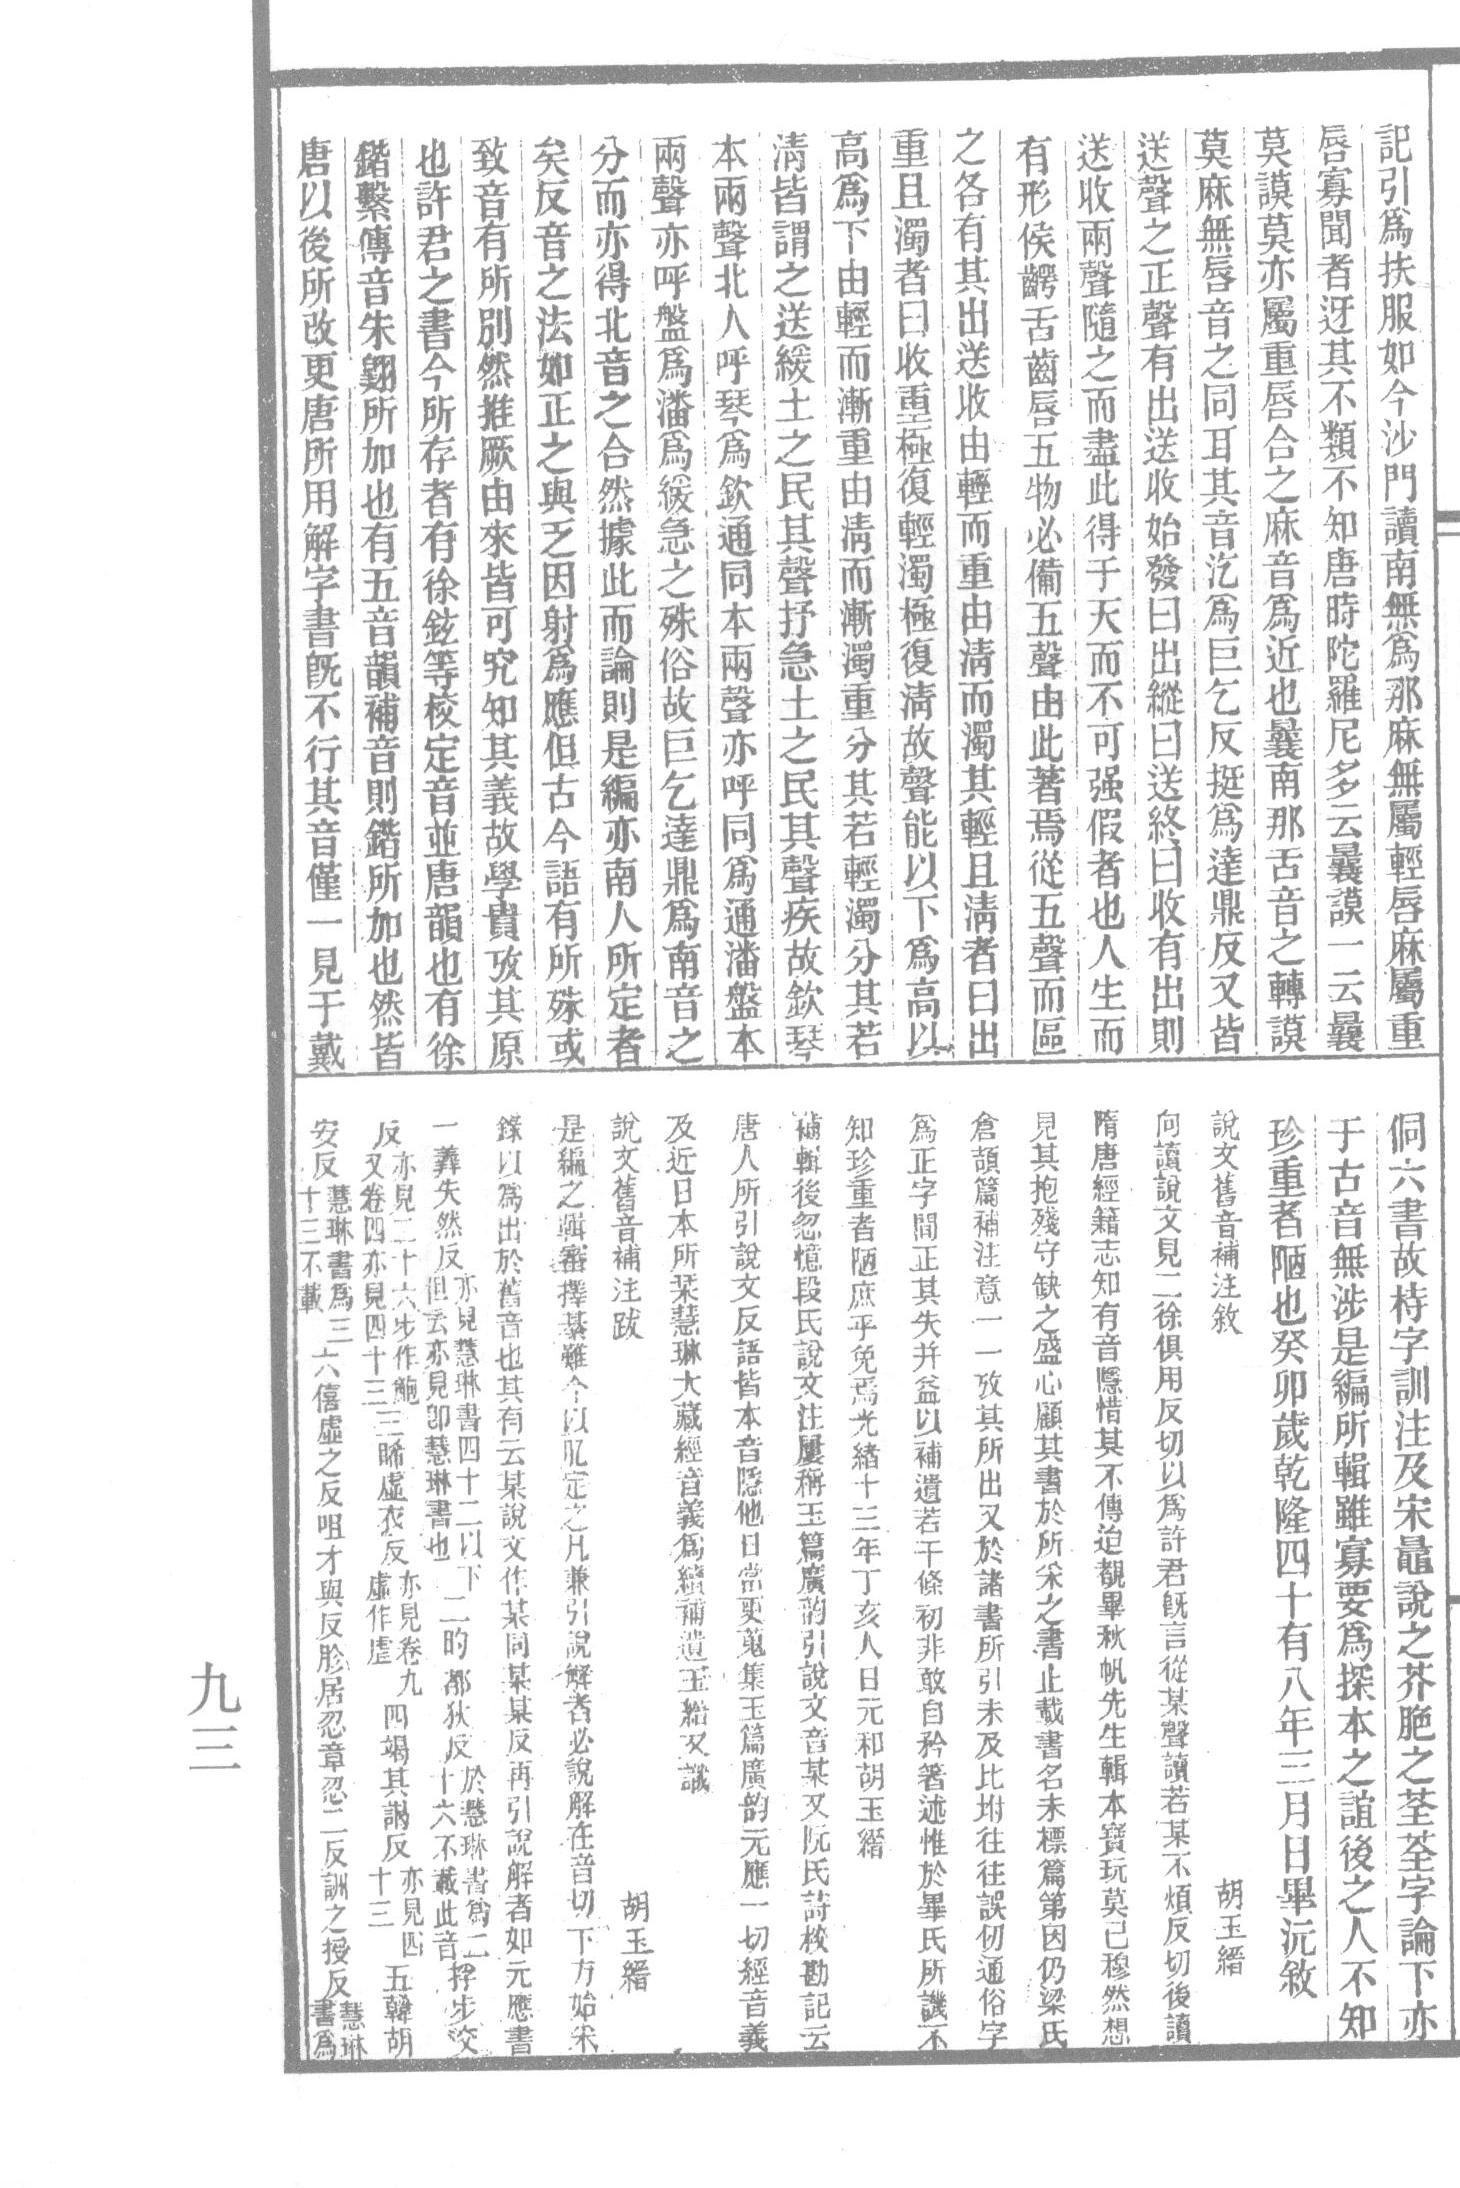 記引爲扶服如今沙門讀南無爲那麻無屬輕唇麻屬重
唇寡聞者迓其不類不知唐時陀羅尼多云曩謨一云曩
莫謨莫亦屬重唇合之麻音爲近也曩南那舌音之轉謨
莫麻無唇音之同耳其音汔爲巨乞反挺爲達鼎反又皆
送聲之正聲有出送收始發曰出縱曰送終曰收有出則
送收兩聲隨之而盡此得于天而不可强假者也人生而
有形侯齶舌齒唇五物必備五聲由此著焉從五聲而區
之各有其出送收由輕而重由淸而濁其輕且淸者曰出
重且濁者曰收重極復輕濁極復淸故聲能以下爲高以
高爲下由輕而漸重由淸而漸濁重分其若輕濁分其若
淸皆謂之送緩土之民其聲抒急土之民其聲疾故欽琴
本兩聲北人呼琴爲欽通同本兩聲亦呼同爲通潘盤本
兩聲亦呼盤爲潘爲緩急之殊俗故巨乞達鼎爲南音之
分而亦得北音之合然據此而論則是編亦南人所定者
矣反音之法如正之與乏因射爲應但古今語有所殊或
致音有所別然推厥由來皆可究知其義故學貴攷其原
也許君之書今所存者有徐鉉等校定音並唐韻也有徐
鍇繫傳音朱翺所加也有五音韻補音則鍇所加也然皆
唐以後所改更唐所用解字書旣不行其音僅一見于戴
侗六書故特字訓注及宋鼂說之芥脃之荃荃字論下亦
于古音無涉是編所輯雖寡要爲探本之誼後之人不知
珍重者陋也癸卯歲乾隆四十有八年三月日畢沅敘
說文舊音補注敘 胡玉縉
向讀說文見二徐俱用反切以爲許君旣言從某聲讀若某不煩反切後讀
隋唐經籍志知有音隱惜其不傳迨觀畢秋帆先生輯本寶玩莫已穆然想
見其抱殘守缺之盛心顧其書於所采之書止載書名未標篇第因仍梁氏
倉頡篇補注意一一攷其所出又於諸書所引未及比坿往往誤仞通俗字
爲正字間正其失并益以補遺若干條初非敢自矜箸述惟於畢氏所譏不
知珍重者陋庶乎免焉光緒十三年丁亥人日元和胡玉縉
補輯後忽憶段氏說文注屢稱玉篇廣韵引說文音某又阮氏詩校勘記云
唐人所引說文反語皆本音隱他日當更蒐集玉篇廣韵元應一切經音義
及近日本所栞慧琳大藏經音義爲續補遺玉縉又識
說文舊音補注跋 胡玉縉
是編之輯審擇綦難今以凡定之凡兼引說解者必說解在音切下方始采
錄以爲出於舊音也其有云某說文作某同某某反再引說解者如元應書
一䕼失然反亦見慧琳書四十二以下但云亦見卽慧琳書也二昀都狄反於慧琳書爲二十六不載此音捊步交
反亦見二十六步作鮑又卷四亦見四十三三睎虛衣反亦見卷九虛作虗四竭其謁反亦見四十三五韓胡
安反慧琳書爲三十三不載六僖虛之反咀才與反胗居忍章忍二反詶之授反慧琳書爲
九三